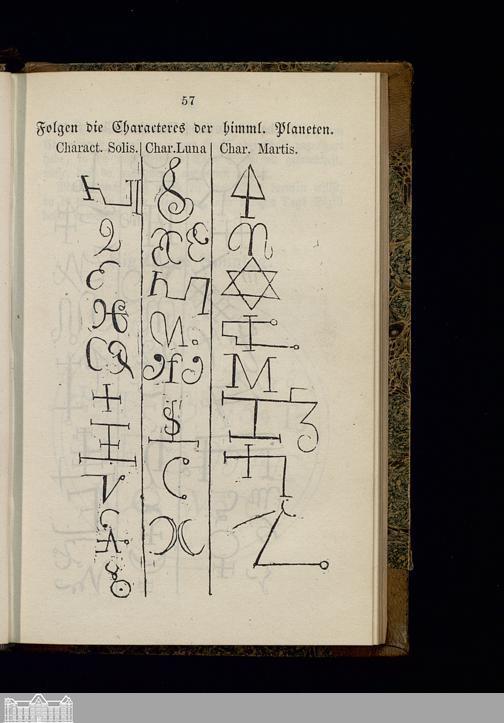 57
Folgen die Characteres der himml. Planeten.
Charact. Solis. Char. Luna Char. Martis.